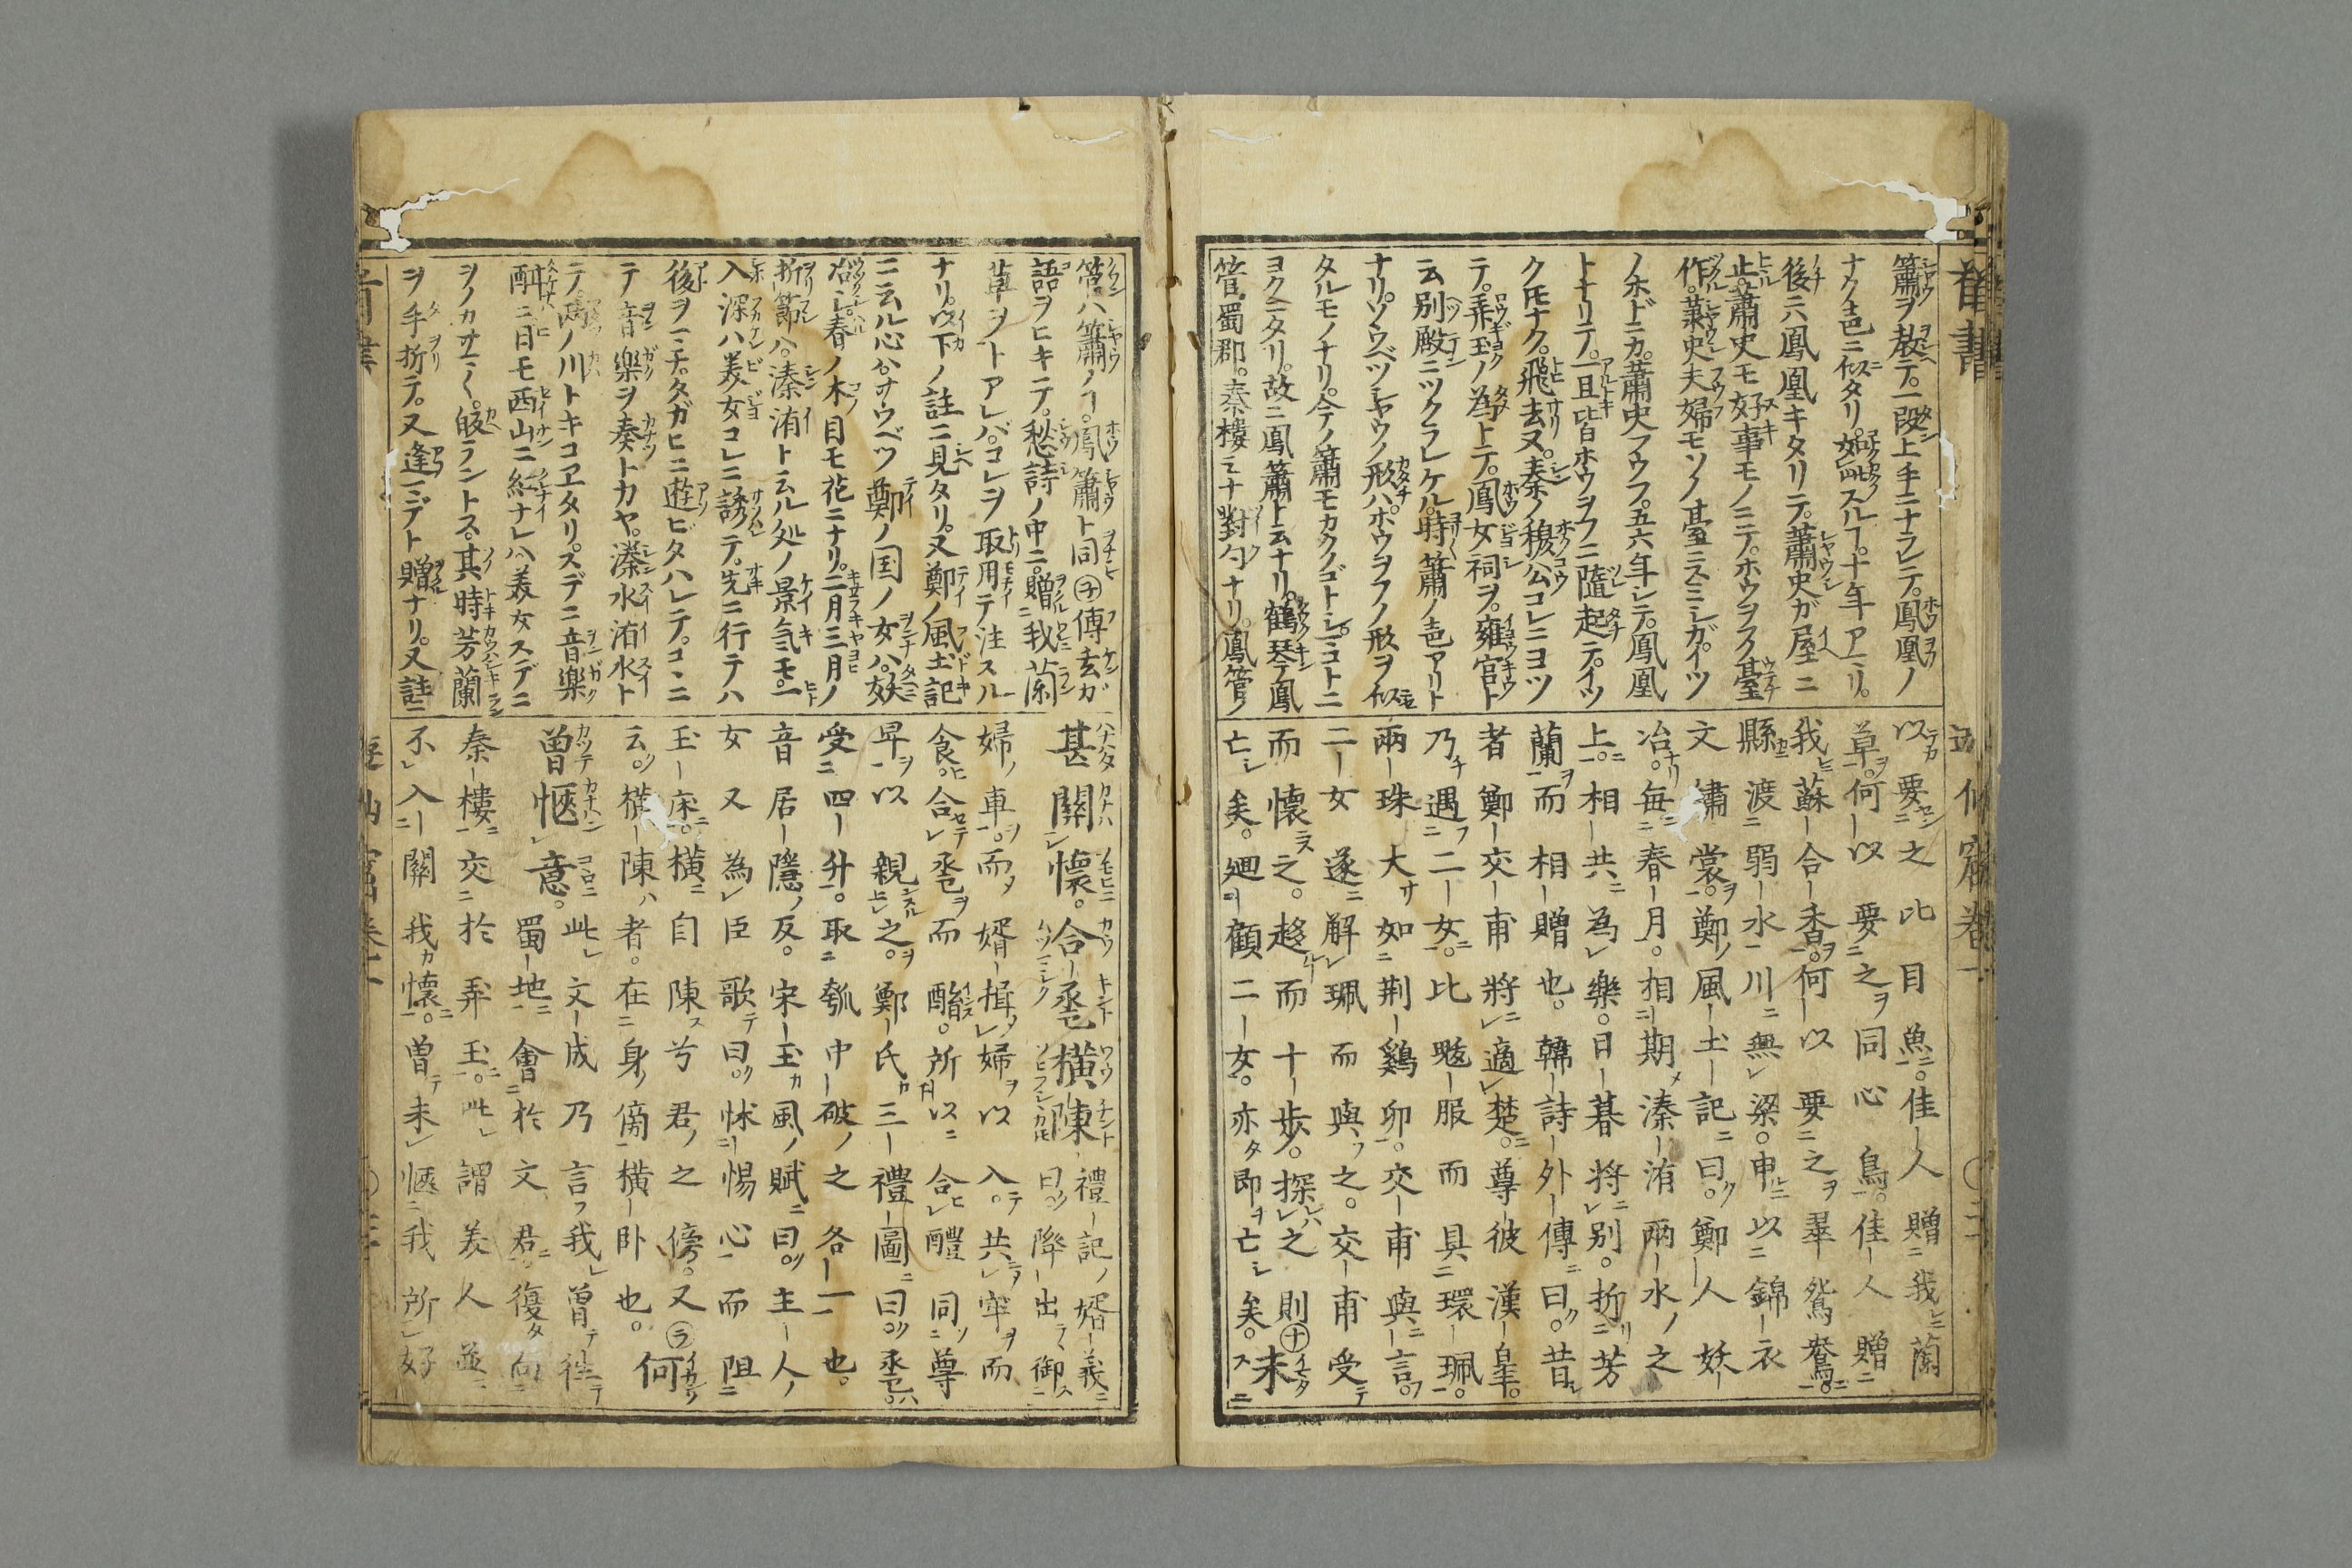 簫ヲ教テ。一段上手ニナラレテ。鳳凰ノ
ナク色ニ似タリ。如此スルフ。十年アマリ。
後ニ鳳凰キタリテ。蕭史ガ屋ニ
止。蕭史モ好事モノニテ。ホウヲフ臺
作。蕭史夫婦モソノ臺ニスミシガ。イツ
ノホドニカ。蕭史フウフ。五六年シテ。鳳凰
トナリテ。一旦皆ホウヲフニ隨起テ。イツ
クトモナク。飛去又。秦ノ穆公コレニヨツ
テ。弄玉ノ為トテ。鳳女祠ヲ。雍宮ト
云別殿ニツクラレケル。時簫ノ色アリト
ナリ。ソウベツシヤウノ形ハ。ホウヲフノ形ヲ似
タルモノナリ。今テノ簫モカクノゴトシ。マコトニ
ヨクニタリ。故ニ鳳簫ト云ナリ。鶴琴鳳
管。蜀郡。秦樓ミナ對句ナリ。鳳管ノ
以要之比目魚。佳人贈我蘭
草。何以要之同心鳥。佳人贈
我蘇合香。何以要之翠鴛鴦。
縣渡弱水川無梁。申以錦衣
文繡裳。鄭風土記曰。鄭人妖
冶。每春月。相期溱洧兩水之
上。相共為樂。日暮將別。折芳
蘭而相贈也。韓詩外傳曰。昔
者鄭交甫將適楚。尊彼漢皐。
乃遇二女。比魃服而具環珮。
兩珠大如荆鷄卵。交甫與言。
二女遂解珮而與之。交甫受
而懷之。趍而十步。探之則未
亡矣。廻顧二女。亦即亡矣。
管ハ簫ノヿ。鳳簫ト同傳玄ガ
語ヲヒキテ。愁詩ノ中ニ。贈我蘭
草ヲトアレバ。コレヲ取用テ注スル
ナリ。以下ノ註ニ見タリ。又鄭ノ風土記
ニ云ル心ハ。ソウベツ鄭ノ国ノ女ハ。妖
冶シ。春ノ木目モ花ニナリ。二月三月ノ
折節ハ。溱洧ト云ル処ノ景氣モ。一
入深ハ美女コレニ誘テ。先ニ行テハ
後ヲマチ。タガヒニ遊ビタハレテ。コヽニ
テ音樂ヲ奏トカヤ。溱水洧水ト
テ。ノ川トキコヱタリ。スデニ音樂
酣ニ日モ西山ニ紅ナレハ美女スデニ
ヲノカサマ〱。皈ラントス。其時芳蘭
ヲ手折テ。又逢マデト贈ナリ。又註ニ
甚關懷。合巹橫陳禮記婚義曰。降出御
婦車。而婿揖婦以入。共牢而
食。合巹而酳。所以合醴同尊
卑以親之。鄭氏三禮圖曰。巹
受四升。取匏中破之各一也。
音居隱反。宋玉風賦曰。主人
女又為臣歌曰。怵惕心而阻
玉床。橫自陳兮君之傍。又何
云。橫陳者。在身傍橫卧也。
曾愜意。此文成乃言我曾往
蜀地會於文君。復向
秦樓交於弄玉。此謂美人並
不入關我懷。曾未愜我所好